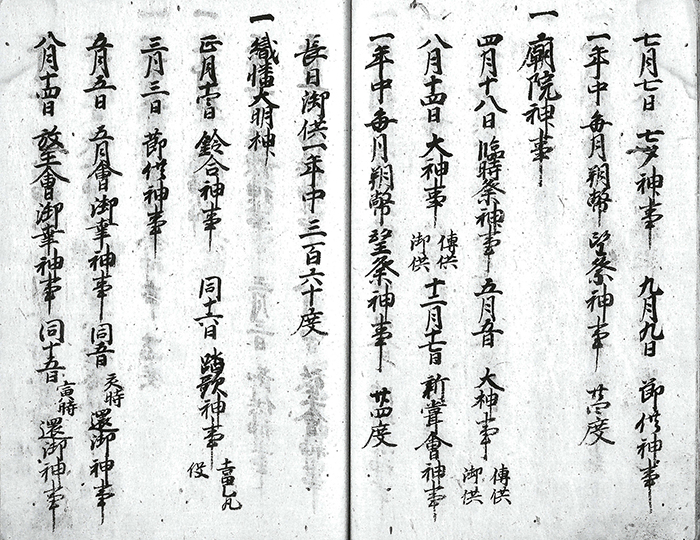 七月七日 七夕神事 九月九日 節供神事
一年中毎月朔幣望祭神事 廿四度
一 廟院神事
四月十八日 臨時祭神事 五月五日 大神事 傳供御供
八月十四日 大神事 傳供御供 十一月十七日 新嘗會神事
一年中毎月朔幣望祭神事 廿四度
長日御供一年中三百六十度
一 織幡大明神
正月十一日 鈴合神事 同十六日 踏歌神事
三月三日 節供神事
五月五日 五月會御幸神事 同五日 還御神事
八月十四日 放生會御幸神事 同十五日 寅時 還御神事